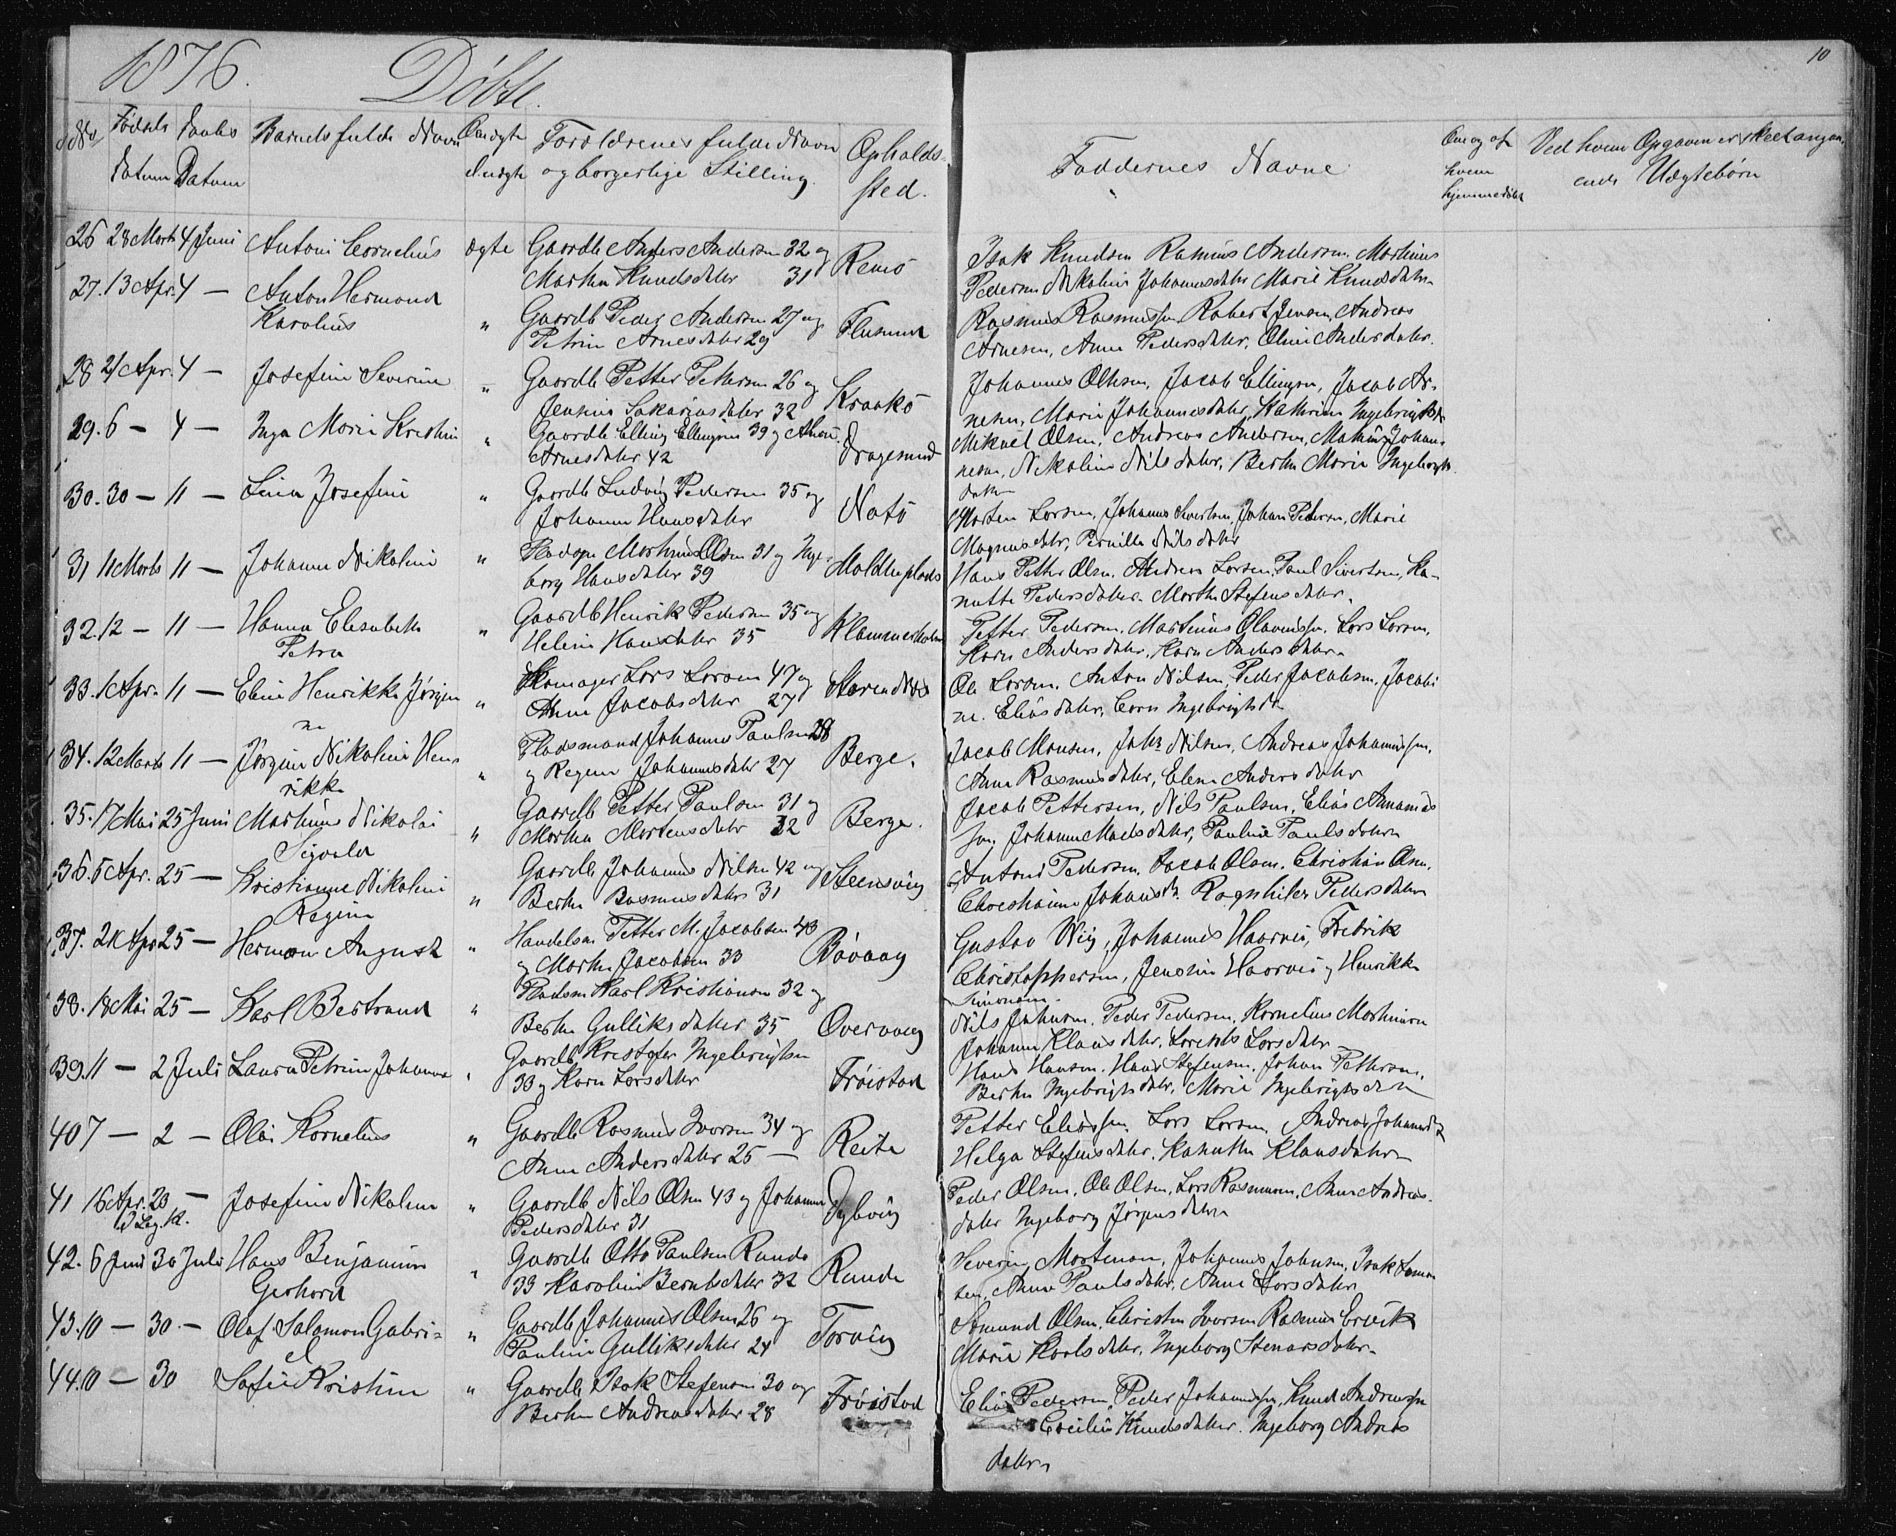 10
1876. Döbte.
No Födsels Datum Daabs Datum Barnets fulde Navn Ægte Uægte Forældrenes fulde Navn og borgerlige Stilling. Opholdssted.
Faddernes Navne
Om og af hvem hjemmedöbt
Ved hvem Opgaven er skeet angaaende Uægtebørn
26 28 Marts 4 Juni Antoni Cornelius ægte Gaardb Anders Andersen 32 og
Martha Knudsdatter 31 Remö
Isak Knudsen Rasmus Andersen, Martinus
Pedersen Nikoline Johannesdatter Marie Knudsdatter
27. 13 Apr. 4 — Anton Hermand
Karolius " Gaardb Peder Andersen 27 og
Petrine Arnesdatter 29 Flusund
Rasmus Rasmussen, Robert Jensen, Andreas
Arnesen, Anne Pedersdatter, Oline Andersdatter.
28 21 Apr. 4 — Josefine Severine " Gaardb Petter Pettersen 26 og
Jensine Sakariasdatter 32 Kraakö
Johannes Olsen, Jacob Ellingsen, Jacob Ar-
nesen, Marie Johannesdatter, Kathrine Ingebrigtsd
29. 6 — 4 — Inga Marie Kristine " Gaardb Elling Ellingsen 39 og Anne
Arnesdatter 42 Dragesund
Mikael Olsen, Andreas Andersen, Johan-
nesen, Nikoline Nilsdatter, Berthe Marie Ingebrigts
datter
30. 30 — 11 — Lina Josefine " Gaardb Ludvig Pedersen 35 og
Johanne Hansdatter Notö
Morten Larsen, Johannes Sivertsen, Johan Petersen, Marie
Magnusdatter, Pernille Nilsdatter
31 11 Marts 11 — Johanne Nikoline " Martinus Olsen 31 og Inge-
borg Hansdatter 39 Moldtuplads
Hans Petter Olsen, Andreas Larsen, Paul Sivertsen, Ka-
nutte Pedersdatter, Marthe Stefensdatter.
32. 12 — 11 — Hanna Elisabeth
Petra " Gaardb Henrik Pedersen 35 og
Heline Hansdatter 35 Klammerholm
Petter Pedersen, Martinus Olavussen, Lars Larsen,
Karen Andersdatter, Karen Andersdatter
33. 1 Apr. 11 — Eline Henrikke Jörgi-
ne " Skomager Lars Larsen 47 og
Anne Jacobsdatter 27
Ole Larsen, Anton Nilsen, Peder Jacobsen, Jacobi
ne Eliasdatter, Ingebrigtsd
34. 12 Marts 11 — Jörgine Nikoline Hen-
rikke " Pladsmand Johannes Paulsen 28
og Regine Johannesdatter 27 Berge.
Jacob Monsen, Johs Nilsen, Andreas Johannessen,
Anne Rasmusdatter, Elene Andersdatter
35. 17 Mai 25 Juni Martinus Nikolai
Sigvald " Gaardb Petter Paulsen 31 og
Martha Mortensdatter 32 Berge.
Jacob Pettersen, Nils Paulsen, Elias Ananias
sen, Johanne Madsdatter, Pauline Paulsdatter
36. 5 Apr. 25 — Kristianne Nikoline
Regine " Gaardb Johannes Nilsen 42 og
Berthe Rasmusdatter 31 Steensvig
Antoni Pedersen, Jacob Olsen, Christian Olsen,
Johansd. Ragnhilde Pedersdatter
37. 21 Apr 25 — Herman August " Handelsm. Petter M. Jacobsen 43
og Marthe Jacobsen 33 Bövaag
Gustav Wiig, Johannes Haavnes, Fredrik
Christoppersen, Jensine Haavnes og Henrikke
Simonsen.
38. 18 Mai 25 — Karl Bertrand " Pladsm Karl Kristiansen 32 og
Berthe Gulliksdatter 35 Overvaag
Nils Johnsen, Peder Pedersen, Kornelius Martinsen
Johanne Klausdatter, Larsdatter
39. 11 — 2 Juli Laura Petrine Johanne " Gaardb Kristofer Ingebrigtsen
33 og Karen Larsdatter Fröistad
Hans Hansen, Hans Stefensen, Johan Pettersen,
Berthe Ingebrigtsdatter, Marie Ingebrigtsdatter
40 7 — 2 — Olai Kornelius " Gaardb Rasmus Iversen 34 og
Anne Andersdatter 25 — Reite
Petter Eliassen, Lars Larsen, Andreas Johannes
Helga Stefensdatter, Kanutte Klausdatter
41 16 Apr. 23 —
i Leg. K. Josefine Nikoline " Gaardb Nils Olsen 43 og Johanne
Pedersdatter 31 Dybvig
Peder Olsen, Ole Olsen, Lars Rasmussen, Anne Andreas
datter Ingeborg Jörgensdatter
42. 6 Juni 30 Juli Hans Benjamin
Gerhard " Gaardb Otto Paulsen Runde
33 Karoline Berntsdatter 32 Runde
Severin Mortensen, Johannes Johnsen, Isak
sen, Anne Paulsdatter, Anne Larsdatter
43. 10 — 30 — Olaf Salomon Gabri-
el " Gaardb Johannes Olsen 26 og
Pauline Gulliksdatter 24 Torvig
Amund Olsen, Christen Iversen Rasmus Ervik
Marie Karlsdatter, Ingeborg Stenarsdatter
44. 10 — 30 Sofie Kristine " Gaardb Isak Stefensen 30 og
Berthe Andreasdatter 28 Fröistad
Elias Pedersen, Peder Johannessen, Knud Andreassen
Cecilie Knudsdatter, Ingeborg Andreas
datter